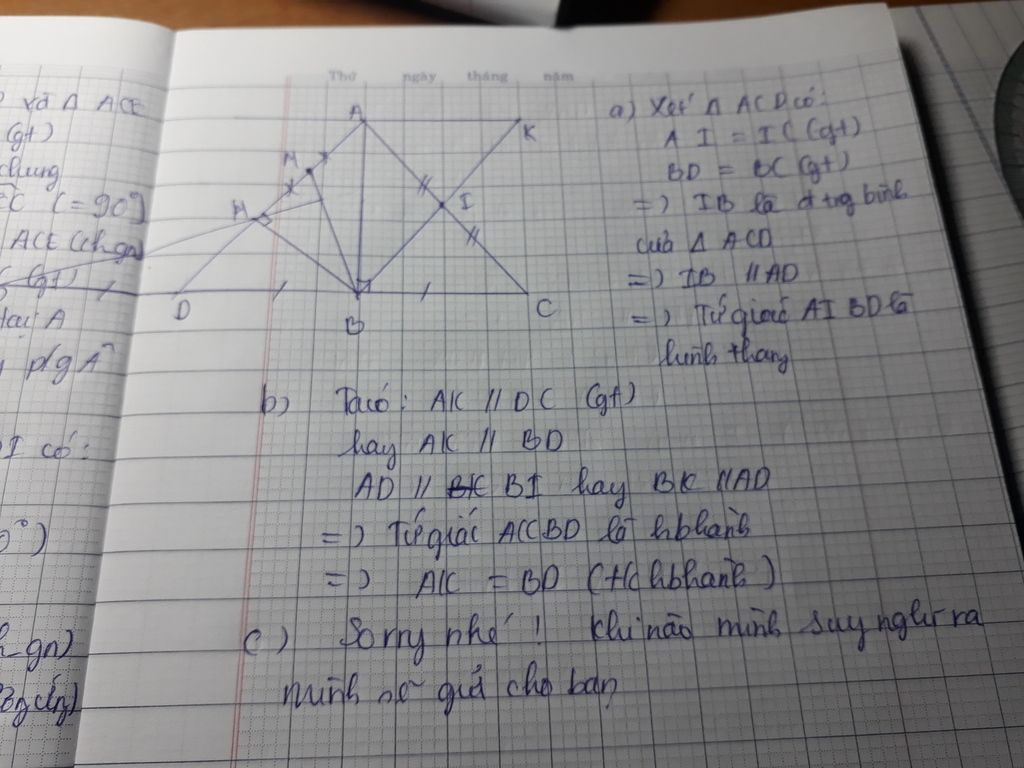 Thứ ngày tháng năm
và Δ ACE
(gt)
chung
(= 90°)
ACE (ch gn)
(gt)
tại A
p/g Â
I có:
0°)
gn)
A
K
M
I
H
D
B
C
a) Xét Δ ACD có:
A I = I C (gt)
BD = BC (gt)
=) IB là đ trg bình
của Δ ACD
=) IB // AD
=) Tứ giác AI BD là
hình thang
b) Ta có: AK // DC (gt)
hay AK // BD
AD // BI hay BK // AD
=) Tứ giác AKBD là hbhành
=) AK = BD (t/c hbhành)
c) Sorry nhé! Khi nào mình suy nghĩ ra
mình sẽ giả cho bạn